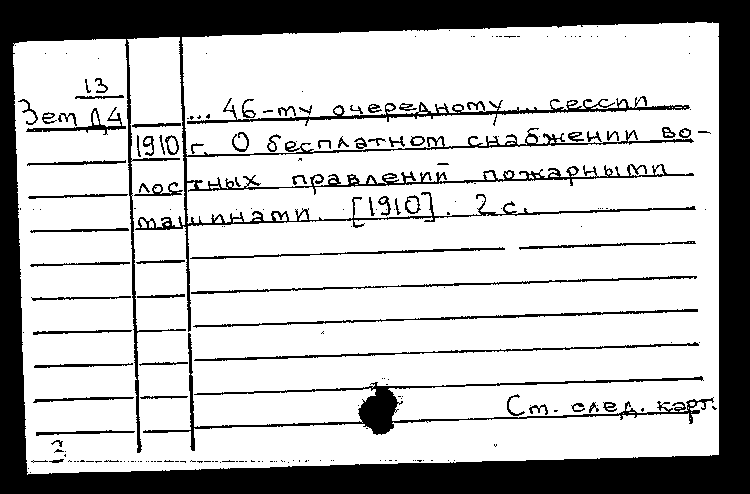 13
Зем Д4
... 46-му очередному ... сессии
1910 г. О бесплатном снабжении во-
лостных правлений пожарными
машинами. [1910]. 2 с.
См. след. карт.
3